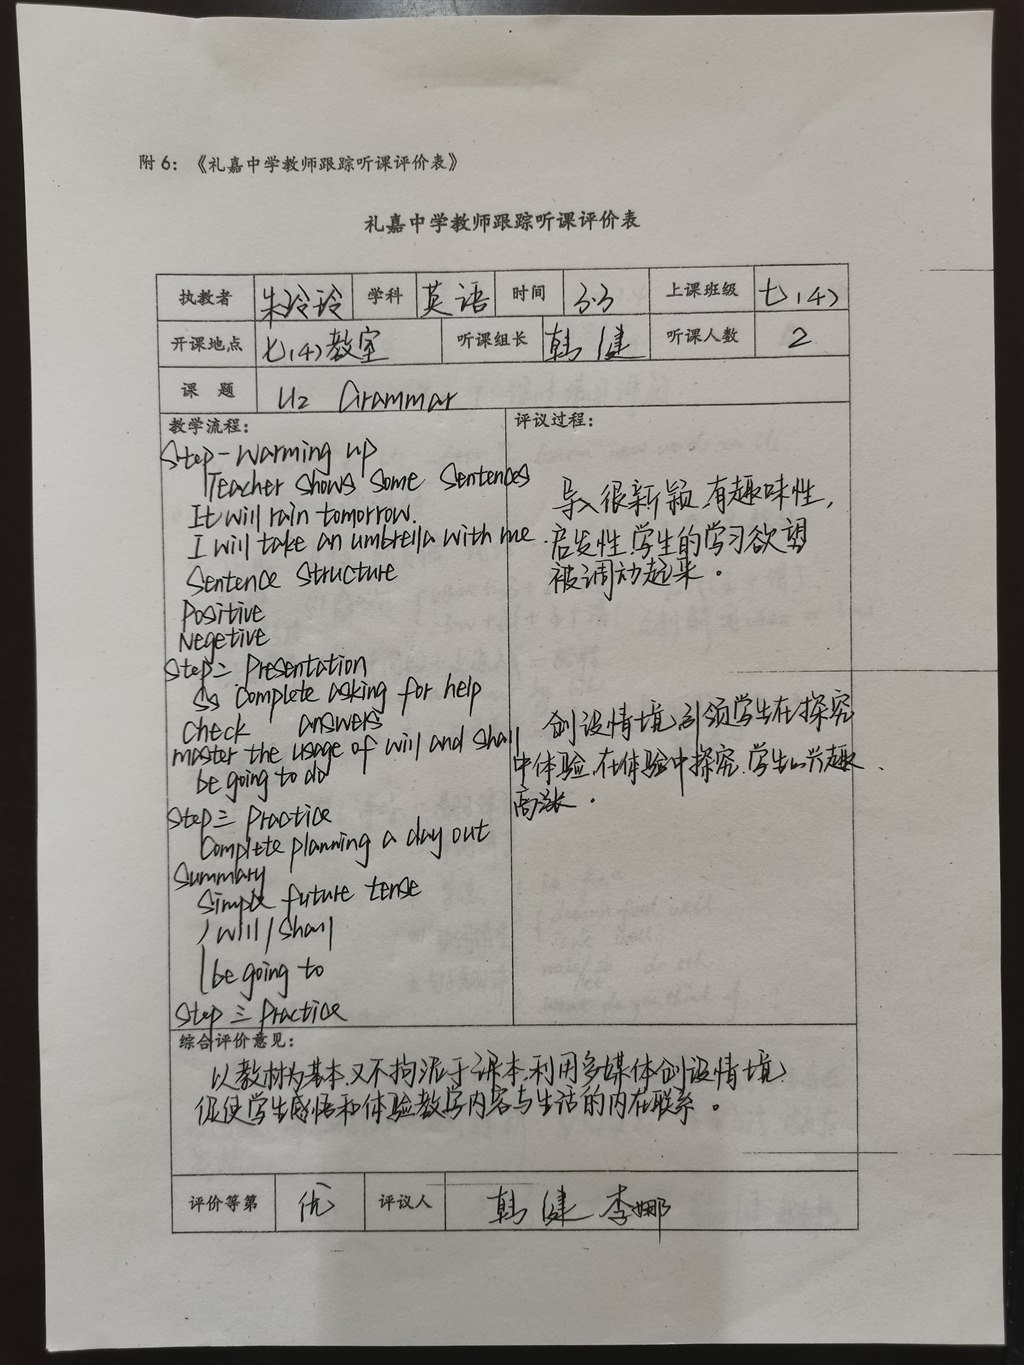 附6：《礼嘉中学教师跟踪听课评价表》
礼嘉中学教师跟踪听课评价表
执教者 朱玲玲 学科 英语 时间 3.3 上课班级 七(4)
开课地点 七(4)教室 听课组长 韩健 听课人数 2
课 题 U2 Grammar
教学流程：
Step一 Warming up
Teacher shows some sentences
It will rain tomorrow.
I will take an umbrella with me.
Sentence Structure
Positive
Negetive
Step二 Presentation
Ss complete asking for help
check answers
master the usage of will and shall
be going to do
Step三 Practice
Complete planning a day out
Summary
Simple future tense
will/shall
be going to
Step三 Practice
评议过程：
导入很新颖,有趣味性,
启发性.学生的学习欲望
被调动起来。
创设情境,引领学生在探究
中体验,在体验中探究,学生的兴趣
高涨.
综合评价意见：
以教材为基本,又不拘泥于课本,利用多媒体创设情境,
促使学生感悟和体验教学内容与生活的内在联系。
评价等第 优 评议人 韩健 李娜